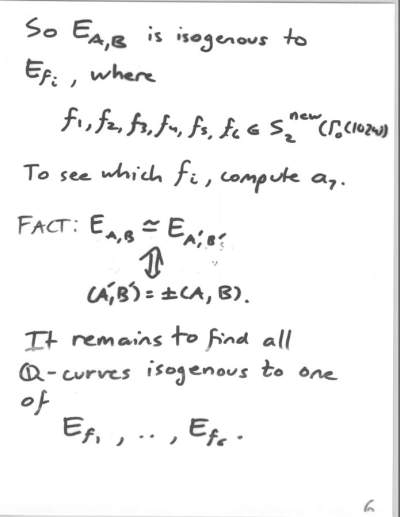 So E_{A,B} is isogenous to
E_{f_i}, where
f_1, f_2, f_3, f_4, f_5, f_6 ∈ S_2^{new}(Γ_0(1024))
To see which f_i, compute a_7.
FACT: E_{A,B} ≃ E_{A',B'}
⇕
(A',B') = ±(A, B).
It remains to find all
Q-curves isogenous to one
of
E_{f_1}, .., E_{f_6}.
6